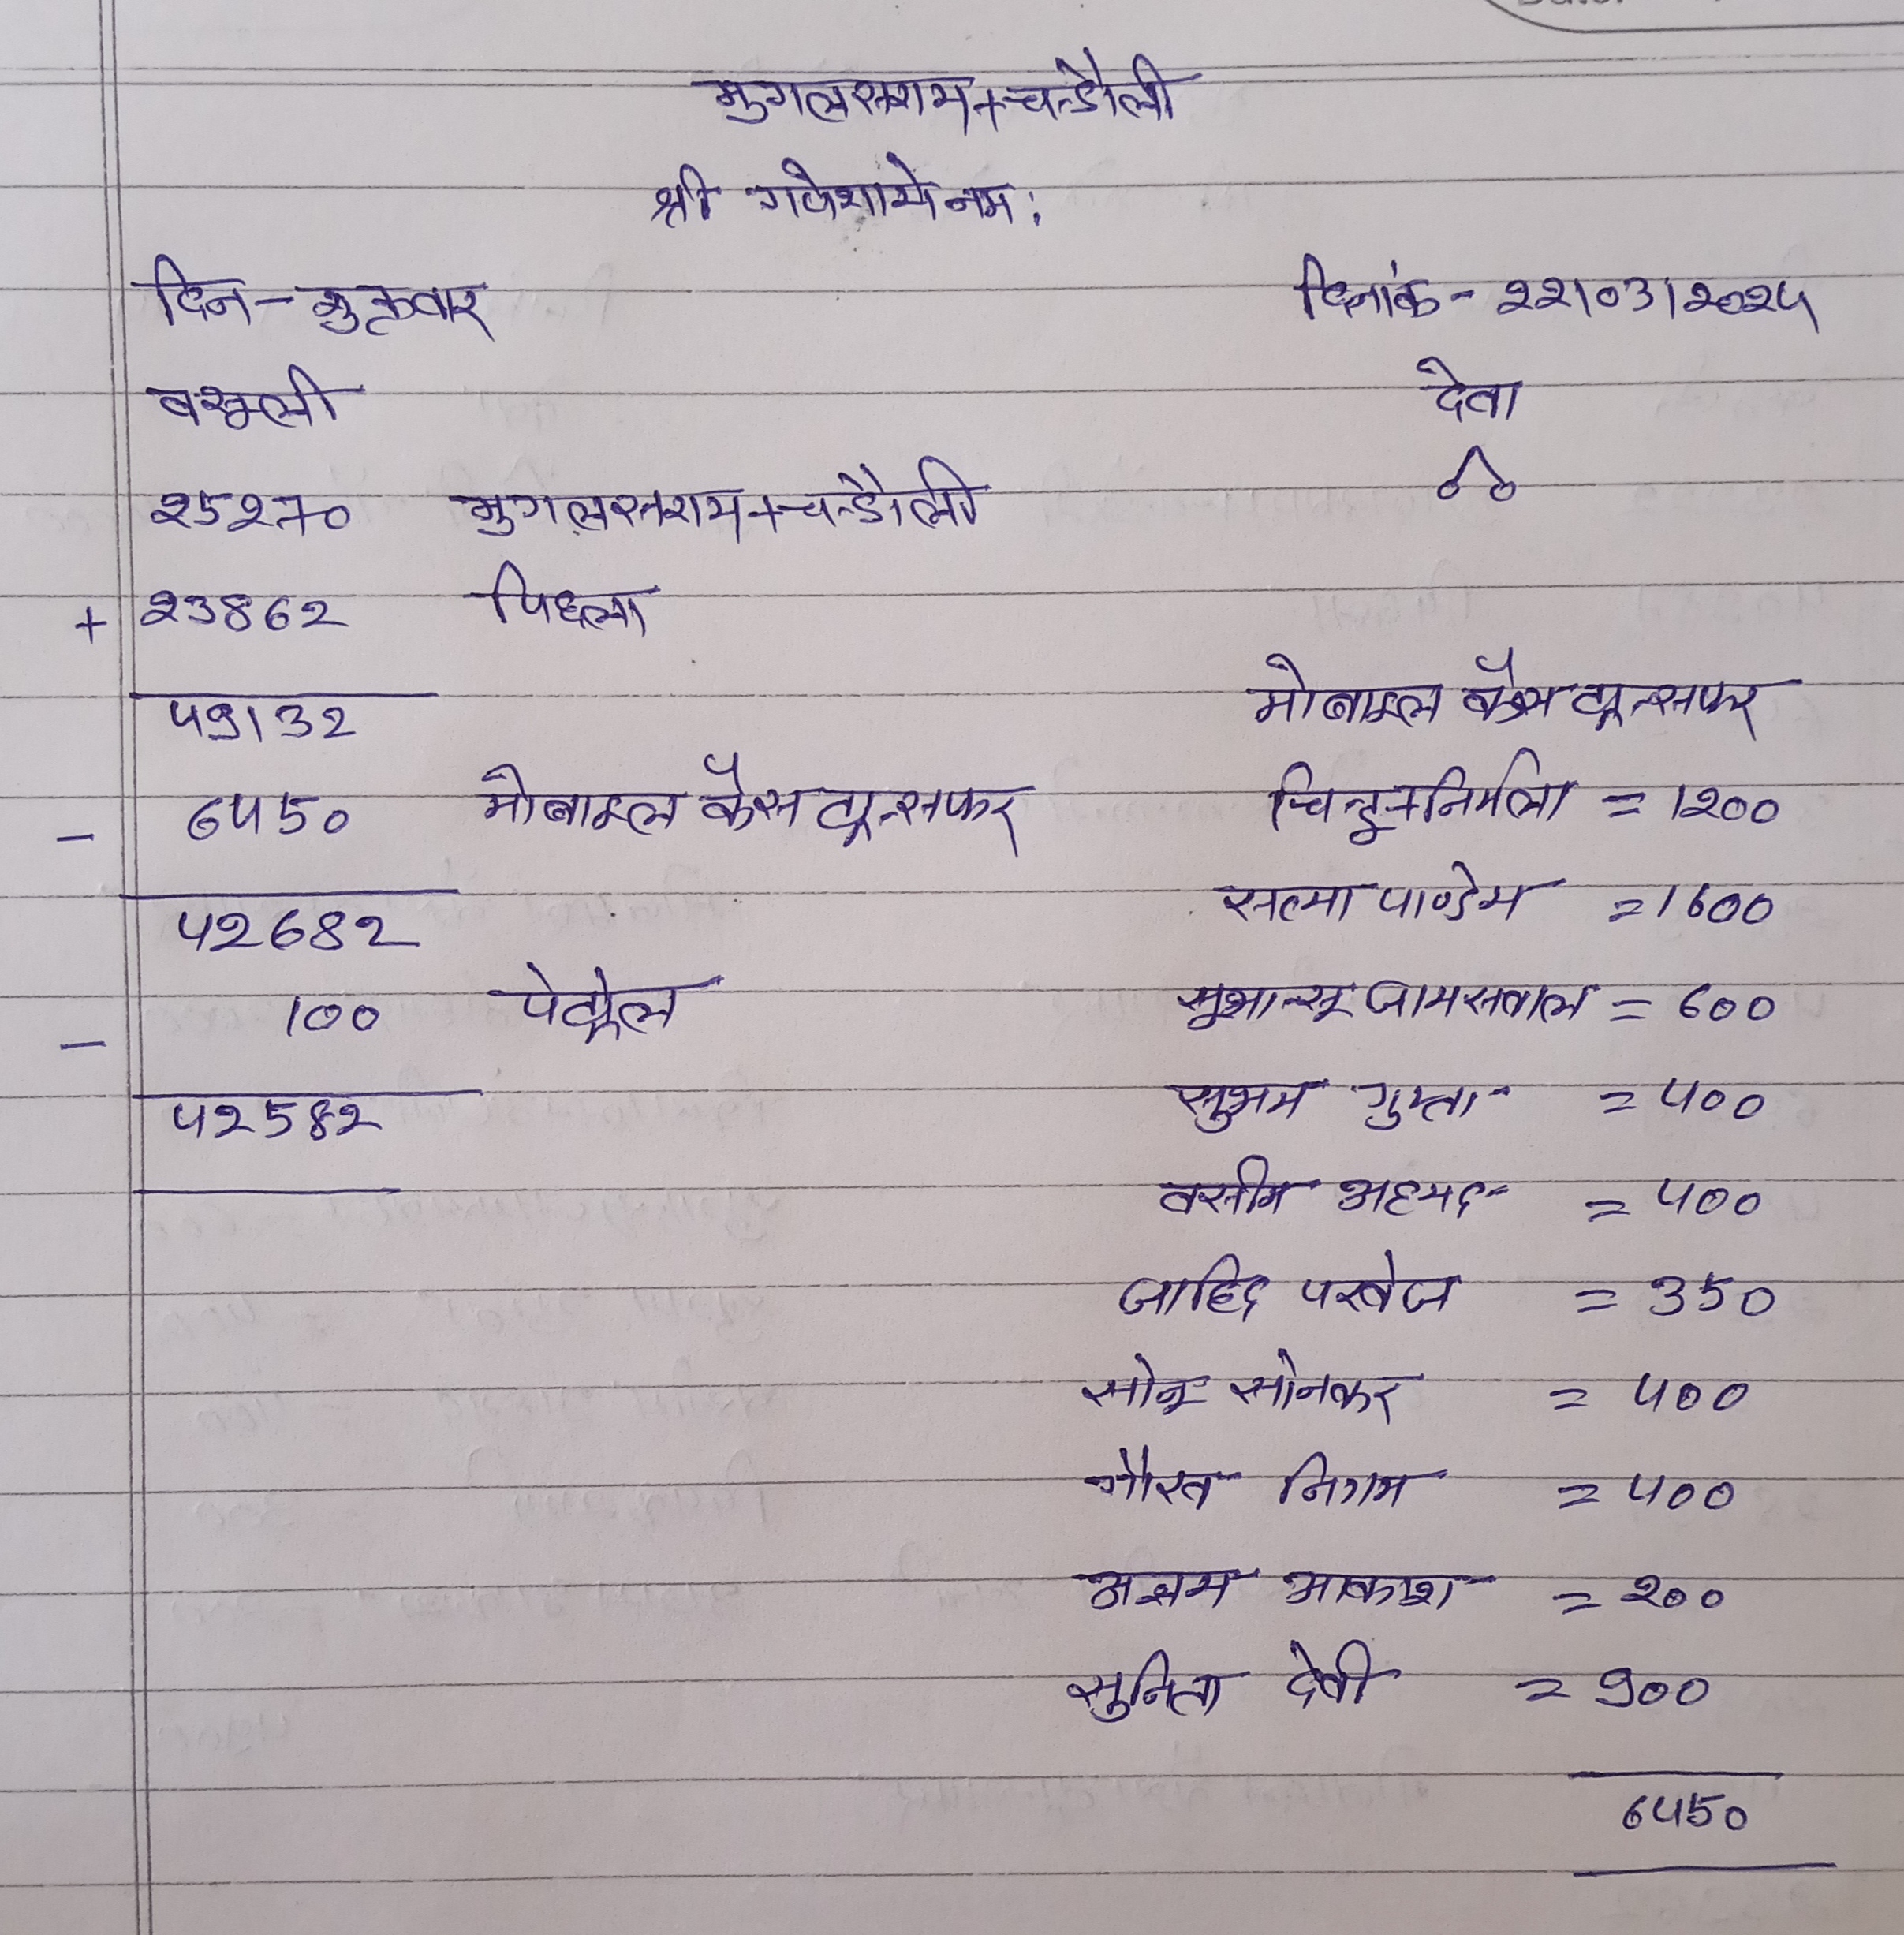 मुगलसराय+चन्डौली
श्री गणेशाये नमः
दिन - शुक्रवार दिनांक - 22/03/2024
वसूली देता
25270 मुगलसराय+चन्डौली
+ 23862 पिछ्ला
49132 मोबाइल कैस ट्रान्सफर
- 6450 मोबाइल कैस ट्रान्सफर चिन्टू+निर्मला = 1200
42682 सत्या पाण्डेय = 1600
- 100 पेट्रोल सुभान्सू जायसवाल = 600
42582 सुभम गुप्ता = 400
वसीम अहमद = 400
जाहिद परवेज = 350
सोनू सोनकर = 400
गौरव निगम = 400
आकाश = 200
सुनिता देवी = 900
6450